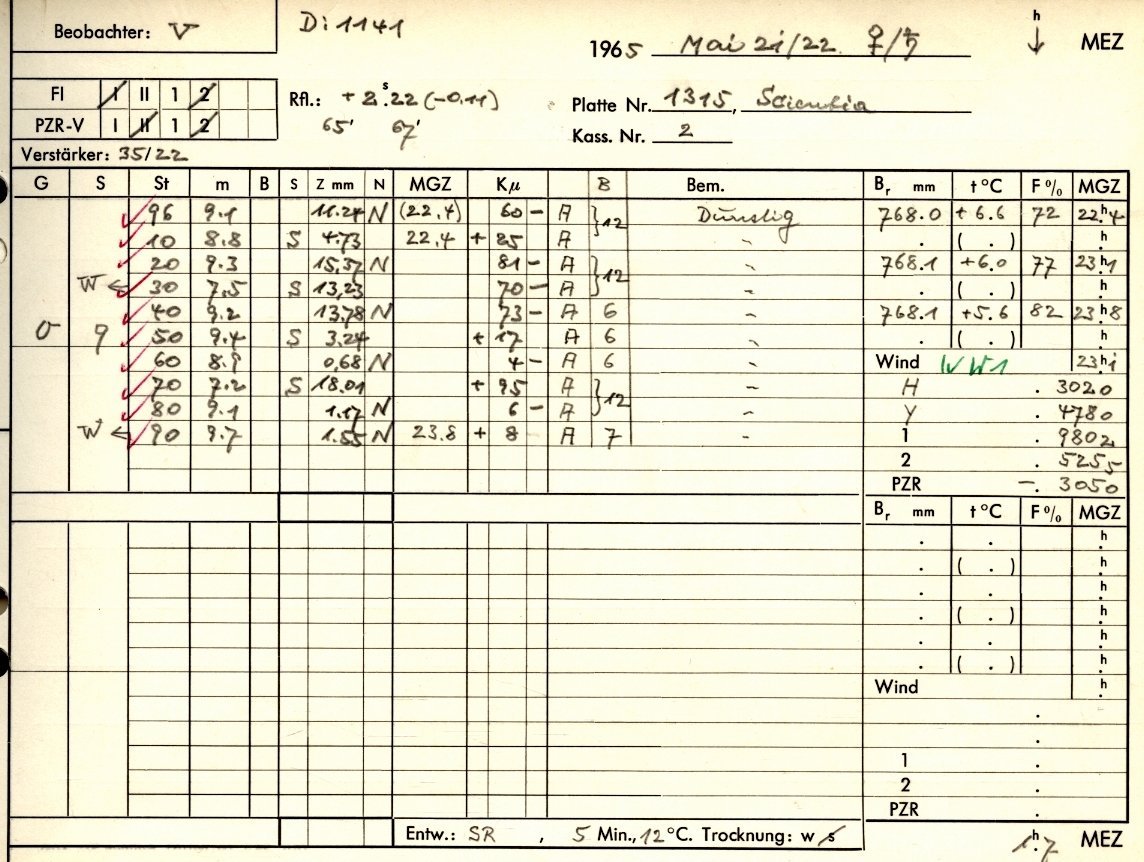 Beobachter: V
Di 1141
1965 Mai 21/22 ♀/♄
h ↓ MEZ
FI I II 1 2
PZR-V I II 1 2
Rfl.: + 2ˢ.22 (-0.11)
65' 67'
Platte Nr. 1315, Scientia
Kass. Nr. 2
Verstärker: 35/22
G S St m B S Z mm N MGZ Kμ B Bem. Br mm t°C F% MGZ
96 9.1 11.24 N (22,4) 60 - A } 12 Dunstig 768.0 +6.6 72 22ʰ4
10 8.8 S 4.73 22,4 + 25 A " . ( . ) h
20 9.3 15,37 N 81 - A } 12 " 768.1 +6.0 77 23ʰ1
W ← 30 7,5 S 13,23 70 - A " . ( . ) h
40 9.2 13,78 N 73 - A 6 " 768.1 +5.6 82 23ʰ8
σ 9 50 9.4 S 3.24 + 17 A 6 " . ( . ) h
60 8.9 0,68 N 4 - A 6 " Wind WW1 23ʰ1
70 7.2 S 18.01 + 95 A } 12 " H . 3020
80 9.1 1.17 N 6 - A " Y . 4780
W ← 90 9.7 1.55 N 23.8 + 8 A 7 " 1 . 9802
2 . 5255
PZR -. 3050
Br mm t°C F% MGZ
. . h
. ( . ) h
. . h
. ( . ) h
. . h
. ( . ) h
Wind h
.
.
1 .
2 .
PZR .
Entw.: SR , 5 Min., 12 °C. Trocknung: w s
1ʰ.7 MEZ